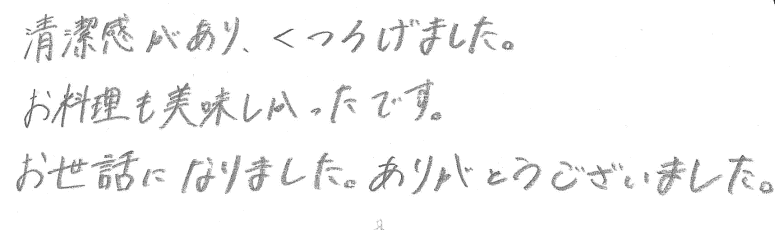 清潔感があり、くつろげました。
お料理も美味しかったです。
お世話になりました。ありがとうございました。